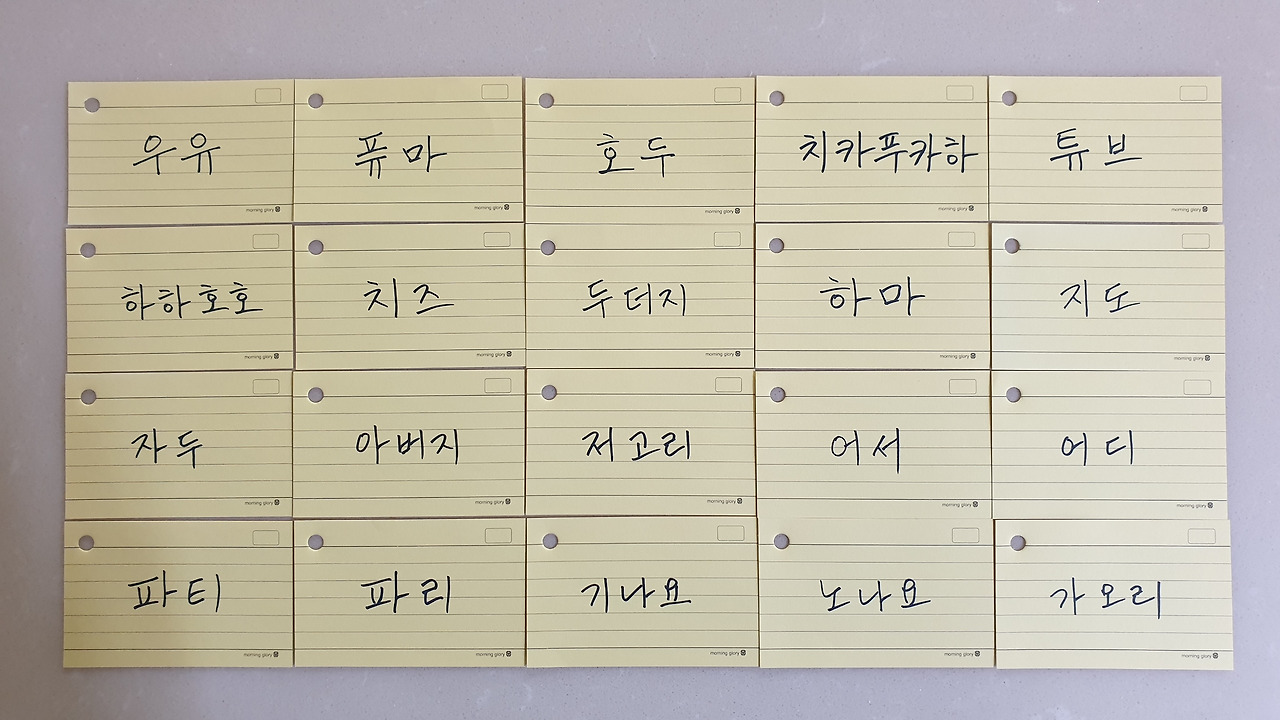 우유 퓨마 호두 치카푸카하 튜브
morning glory morning glory morning glory morning glory morning glory
하하호호 치즈 두더지 하마 지도
morning glory morning glory morning glory morning glory morning glory
자두 아버지 저고리 어서 어디
morning glory morning glory morning glory morning glory morning glory
파티 파리 기나요 노나요 가오리
morning glory morning glory morning glory morning glory morning glory